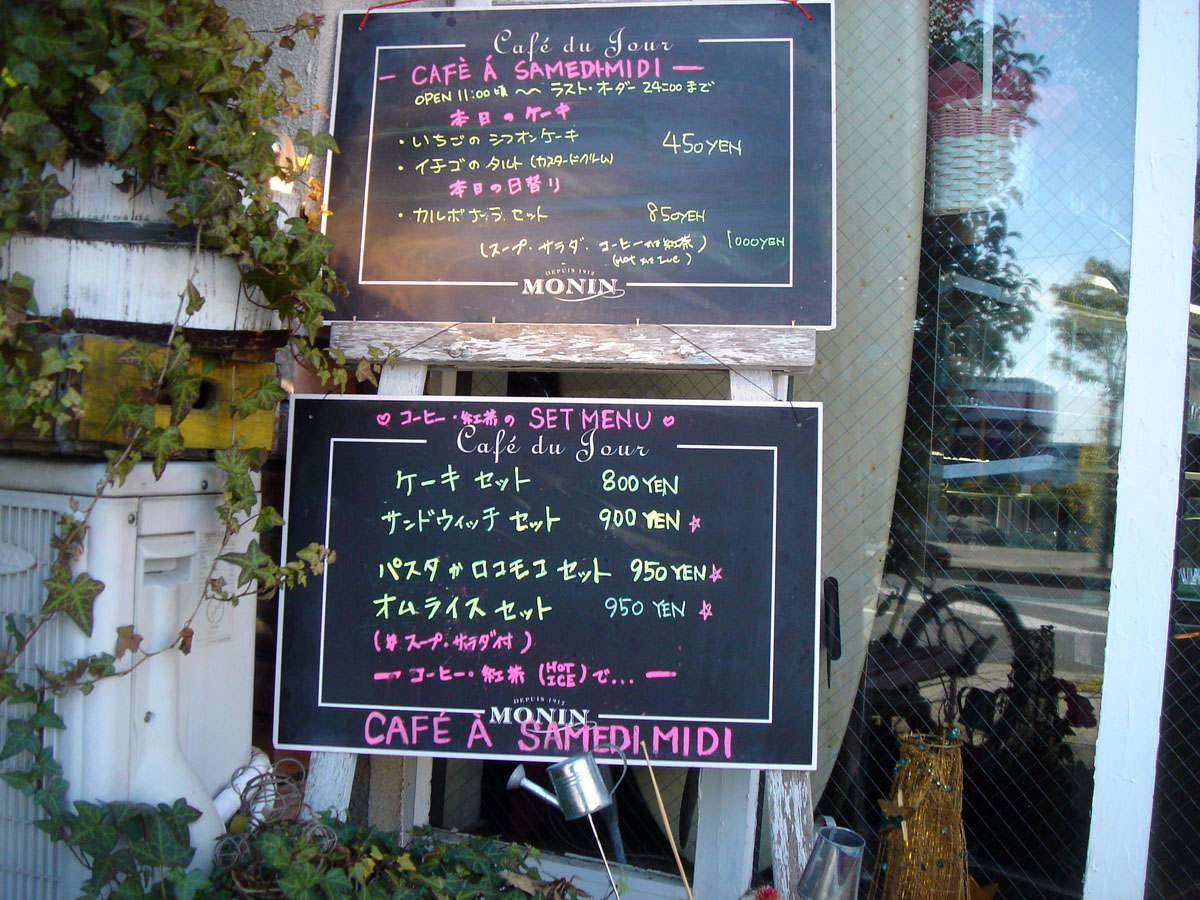 Café du Jour
— CAFÈ Á SAMEDI-MIDI —
OPEN 11:00頃 〜 ラスト・オーダー 24:00まで
本日のケーキ
・いちごのシフォンケーキ 450YEN
・イチゴのタルト(カスタードクリーム)
本日の日替り
・カルボナーラ セット 850YEN
(スープ・サラダ・コーヒーor紅茶) 1000YEN
DEPUIS 1912
MONIN
♡ コーヒー・紅茶の SET MENU ♡
Café du Jour
ケーキ セット 800YEN
サンドウィッチ セット 900 YEN ☆
パスタかロコモコ セット 950YEN☆
オムライス セット 950 YEN ☆
(☆ スープ・サラダ付)
— コーヒー・紅茶 (HOT ICE)で... —
DEPUIS 1912
MONIN
CAFÉ À SAMEDI,MIDI